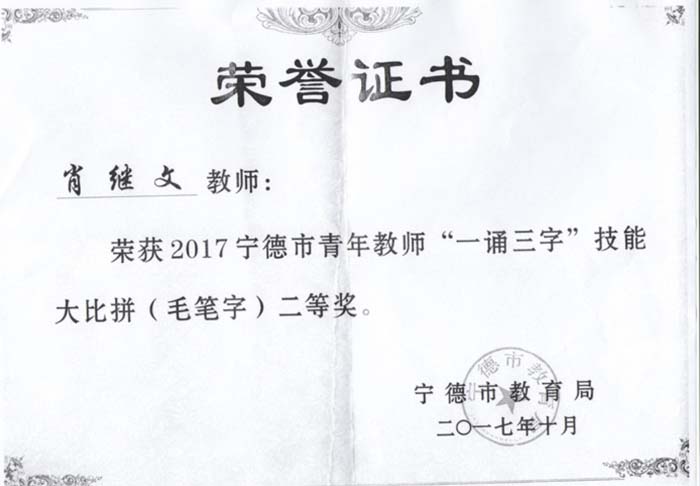 荣誉证书
肖继文 教师：
荣获2017宁德市青年教师“一诵三字”技能
大比拼（毛笔字）二等奖。
宁德市教育局
宁德市教育局
二〇一七年十月